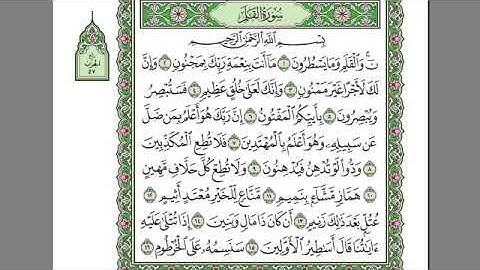 سُورَةُ القَلَمِ
بِسْمِ اللَّهِ الرَّحْمَٰنِ الرَّحِيمِ
نٓ ۚ وَالْقَلَمِ وَمَا يَسْطُرُونَ ١ مَا أَنتَ بِنِعْمَةِ رَبِّكَ بِمَجْنُونٍ ٢ وَإِنَّ
لَكَ لَأَجْرًا غَيْرَ مَمْنُونٍ ٣ وَإِنَّكَ لَعَلَىٰ خُلُقٍ عَظِيمٍ ٤ فَسَتُبْصِرُ
وَيُبْصِرُونَ ٥ بِأَييِّكُمُ الْمَفْتُونُ ٦ إِنَّ رَبَّكَ هُوَ أَعْلَمُ بِمَن ضَلَّ
عَن سَبِيلِهِ وَهُوَ أَعْلَمُ بِالْمُهْتَدِينَ ٧ فَلَا تُطِعِ الْمُكَذِّبِينَ
٨ وَدُّوا لَوْ تُدْهِنُ فَيُدْهِنُونَ ٩ وَلَا تُطِعْ كُلَّ حَلَّافٍ مَّهِينٍ
١٠ هَمَّازٍ مَّشَّاءٍ بِنَمِيمٍ ١١ مَّنَّاعٍ لِّلْخَيْرِ مُعْتَدٍ أَثِيمٍ ١٢
عُتُلٍّ بَعْدَ ذَٰلِكَ زَنِيمٍ ١٣ أَن كَانَ ذَا مَالٍ وَبَنِينَ ١٤ إِذَا تُتْلَىٰ عَلَيْهِ
ءَايَٰتُنَا قَالَ أَسَٰطِيرُ الْأَوَّلِينَ ١٥ سَنَسِمُهُ عَلَى الْخُرْطُومِ ١٦
الحزب
٥٧